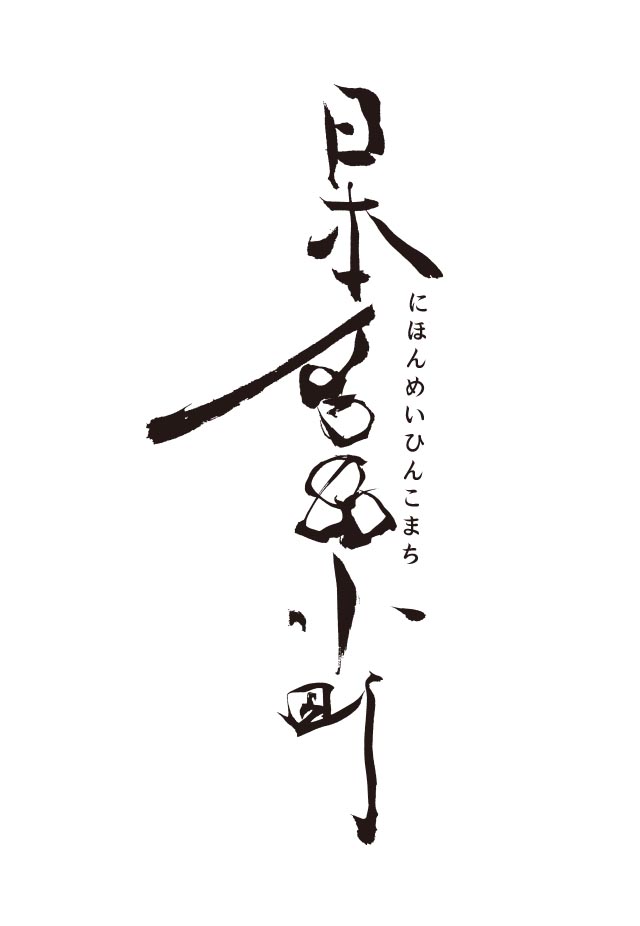 日本名品小町
にほんめいひんこまち